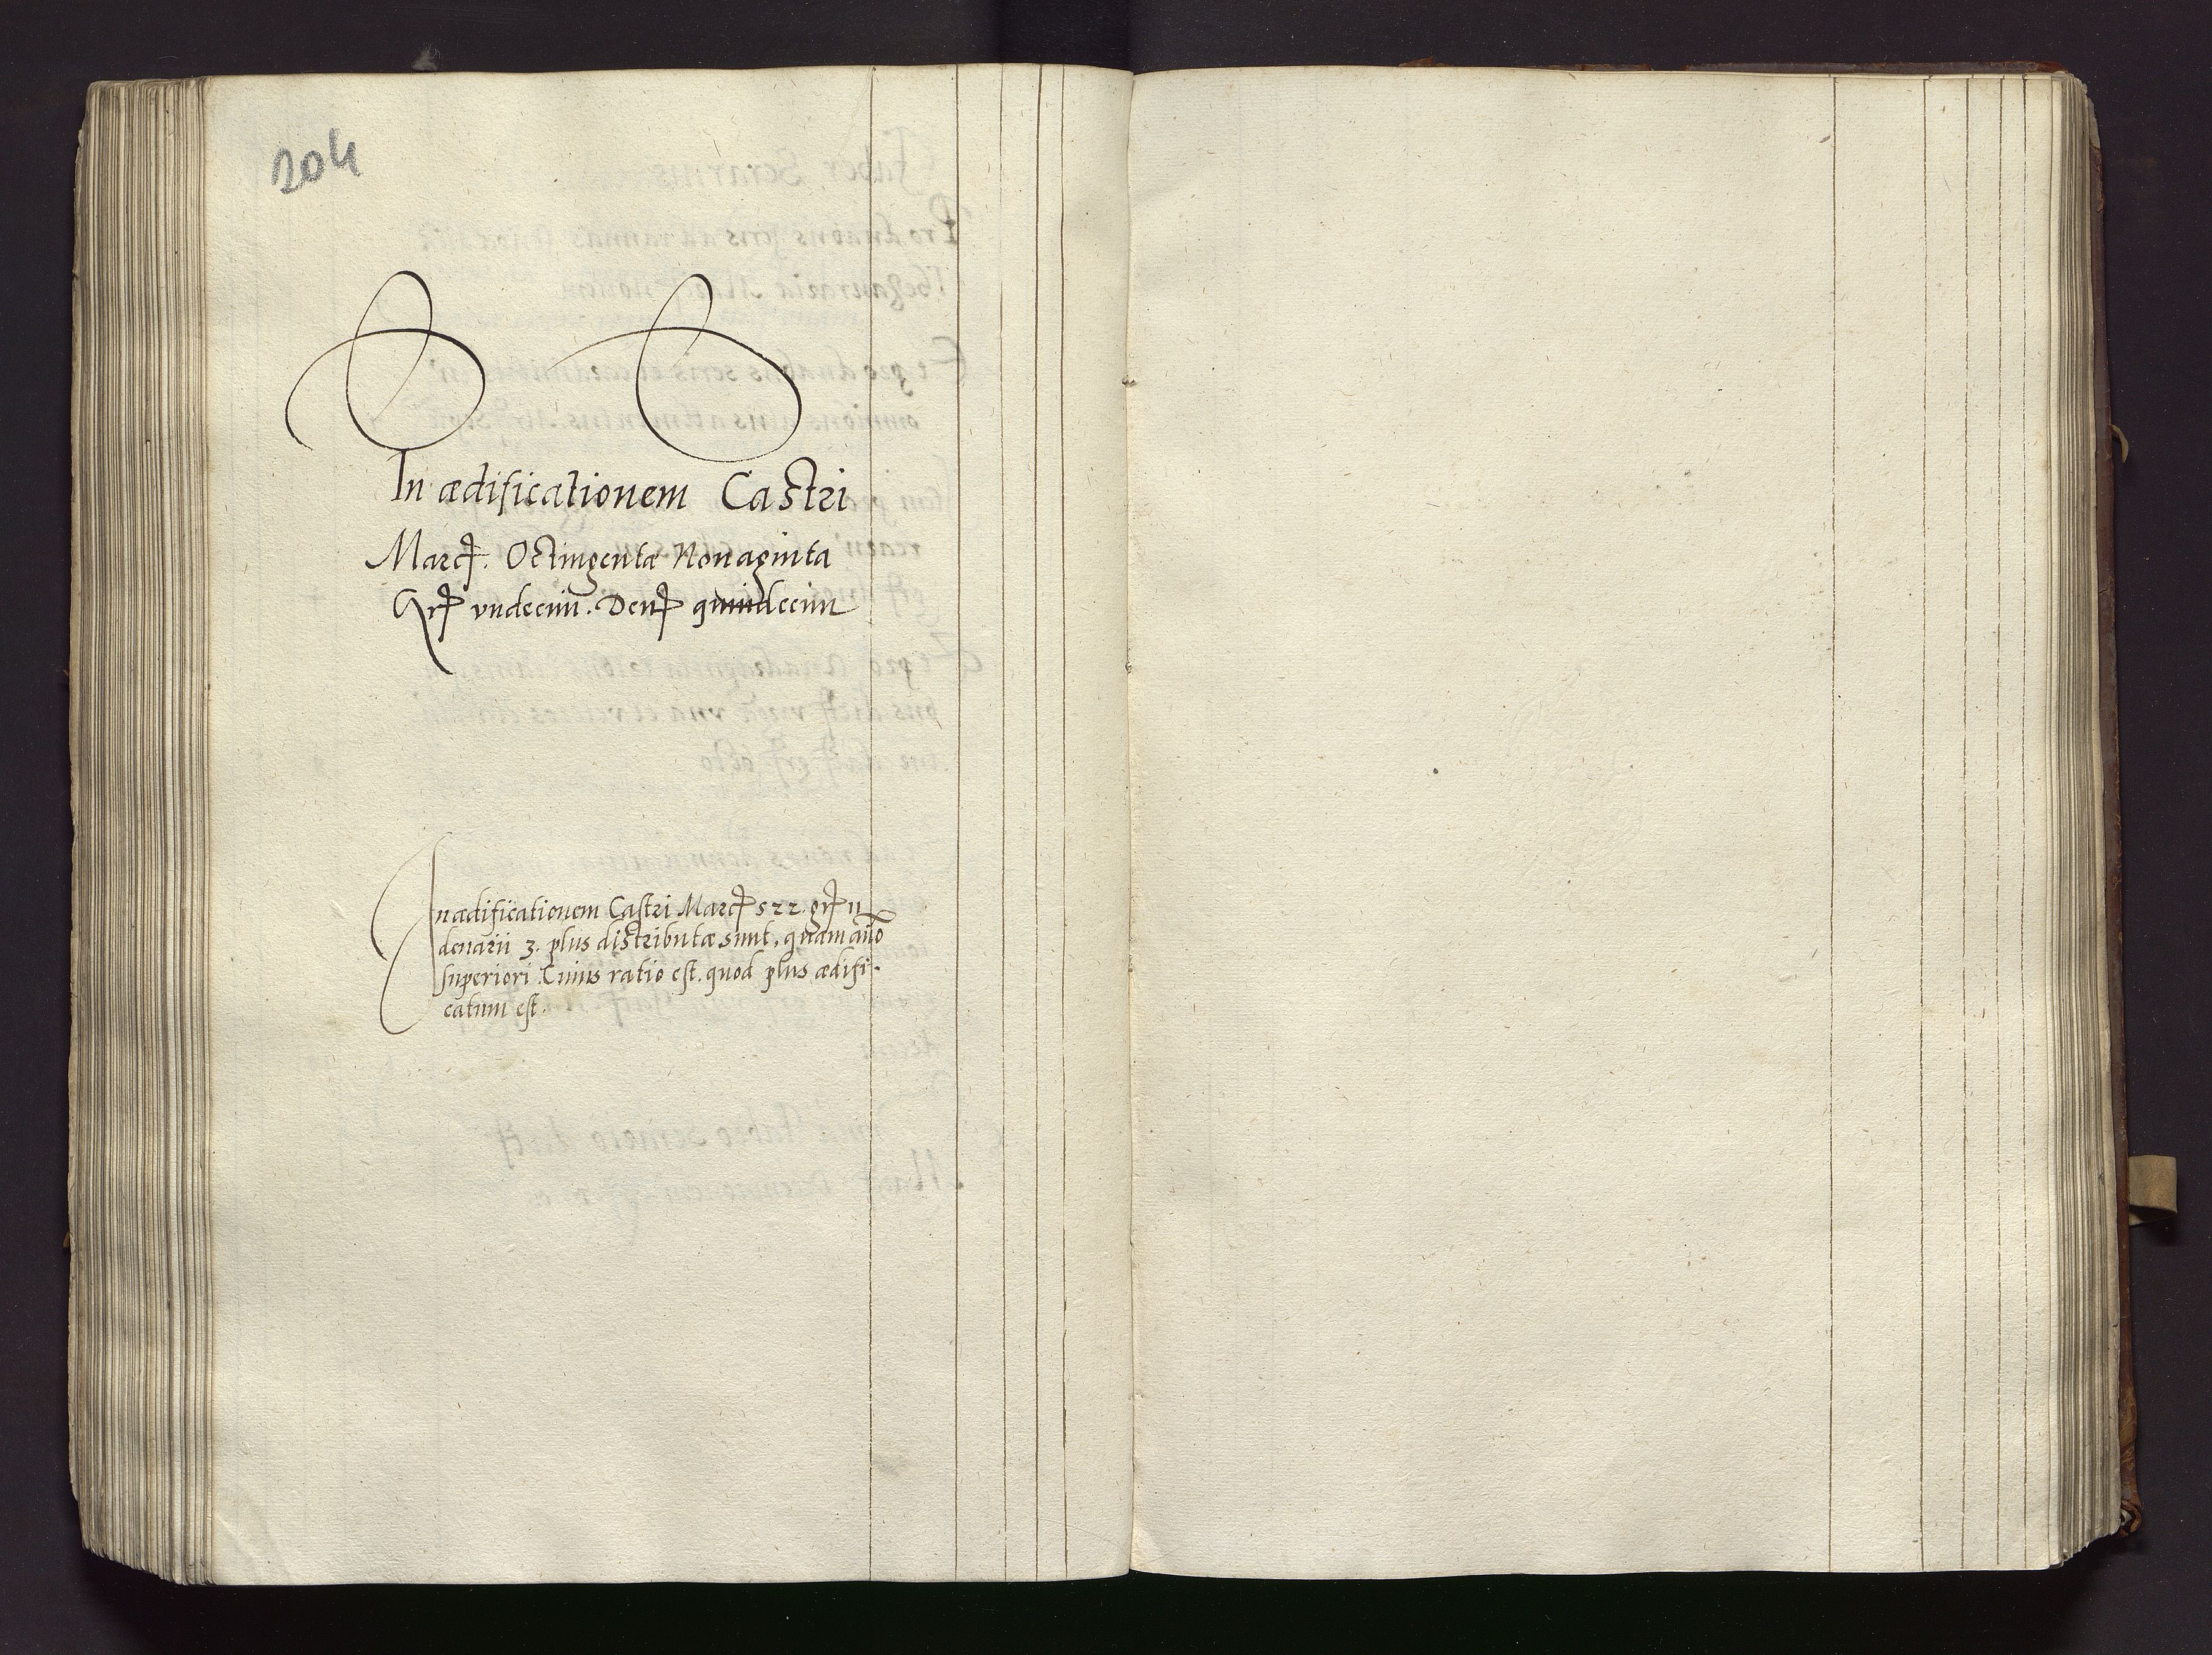 204
In ædificationem Castri
Marcẜ. Octingentæ Nonaginta
Grẜ vndecim. Denẜ quindecim
In ædificationem Castri Marcẜ 522. grẜ 11
denarii 3. plus distributæ sunt, quam año
superiori. Cuius ratio est. quod plus ædifi-
catum est.